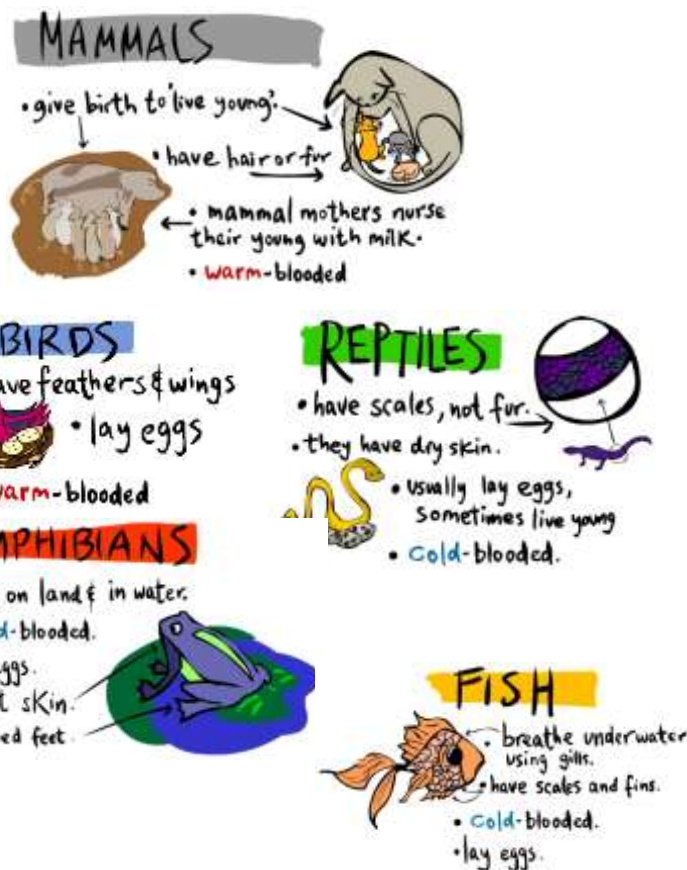 MAMMALS
• give birth to 'live young'.
• have hair or fur
• mammal mothers nurse
their young with milk.
• warm-blooded
BIRDS
ave feathers & wings
• lay eggs
arm-blooded
REPTILES
• have scales, not fur.
• they have dry skin.
• usually lay eggs,
sometimes live young
• cold-blooded.
MPHIBIANS
on land & in water.
d-blooded.
ggs.
t skin.
ed feet
FISH
• breathe underwater
using gills.
• have scales and fins.
• cold-blooded.
• lay eggs.